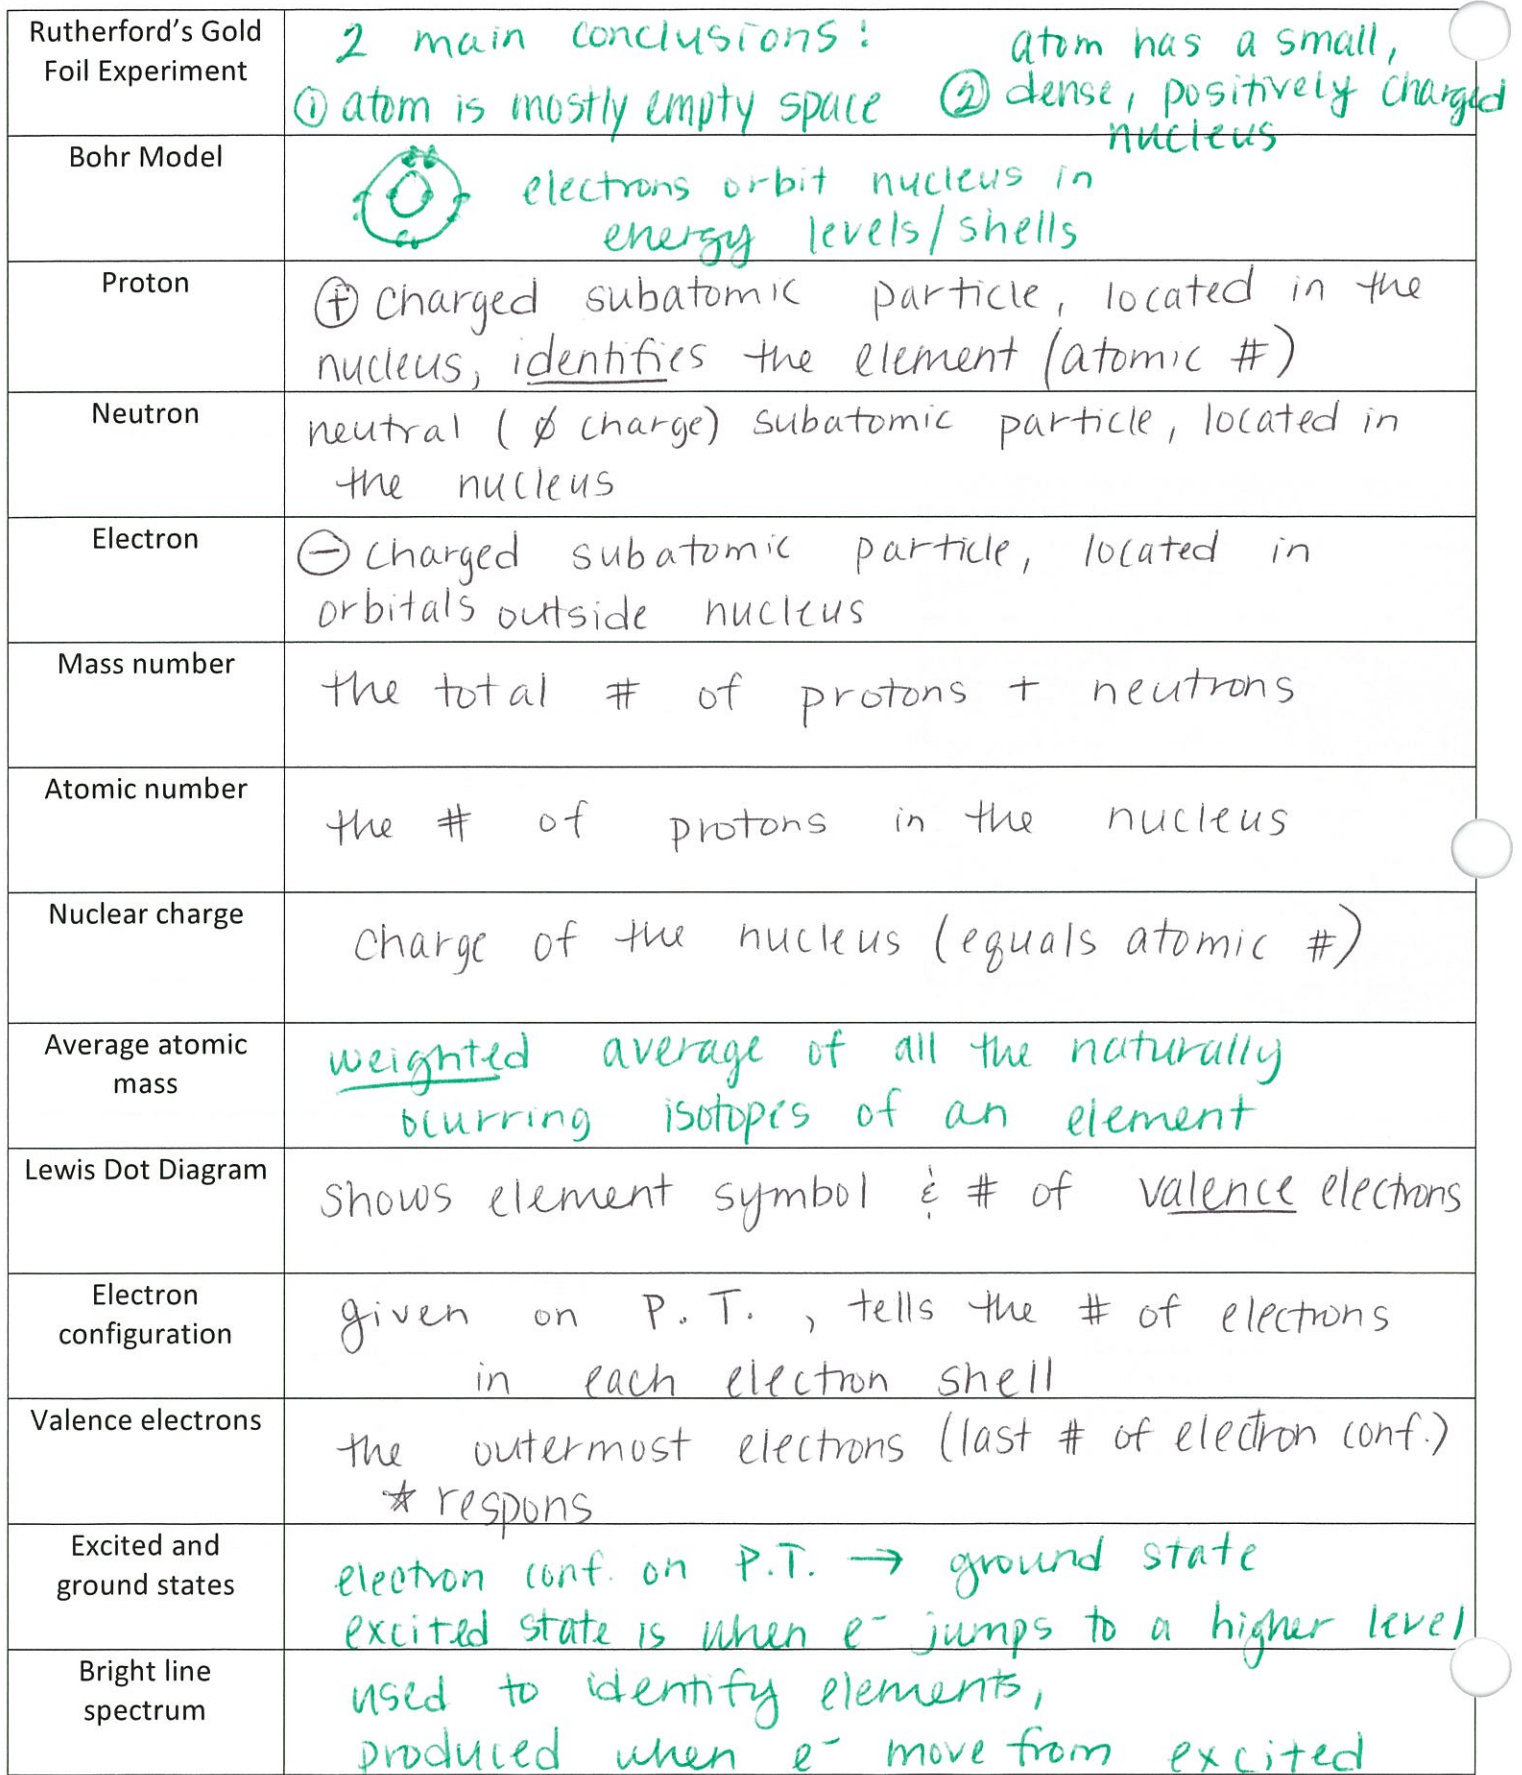 Rutherford's Gold
Foil Experiment
2 main conclusions:
① atom is mostly empty space
atom has a small,
② dense, positively charged
nucleus
Bohr Model
electrons orbit nucleus in
energy levels/shells
Proton
⊕ charged subatomic particle, located in the
nucleus, identifies the element (atomic #)
Neutron
neutral (ø charge) subatomic particle, located in
the nucleus
Electron
⊖ charged subatomic particle, located in
orbitals outside nucleus
Mass number
the total # of protons + neutrons
Atomic number
the # of protons in the nucleus
Nuclear charge
charge of the nucleus (equals atomic #)
Average atomic
mass
weighted average of all the naturally
ocurring isotopes of an element
Lewis Dot Diagram
shows element symbol & # of valence electrons
Electron
configuration
given on P.T., tells the # of electrons
in each electron shell
Valence electrons
the outermost electrons (last # of electron conf.)
* respons
Excited and
ground states
electron conf. on P.T. → ground state
excited state is when e⁻ jumps to a higher level
Bright line
spectrum
used to identify elements,
produced when e⁻ move from excited